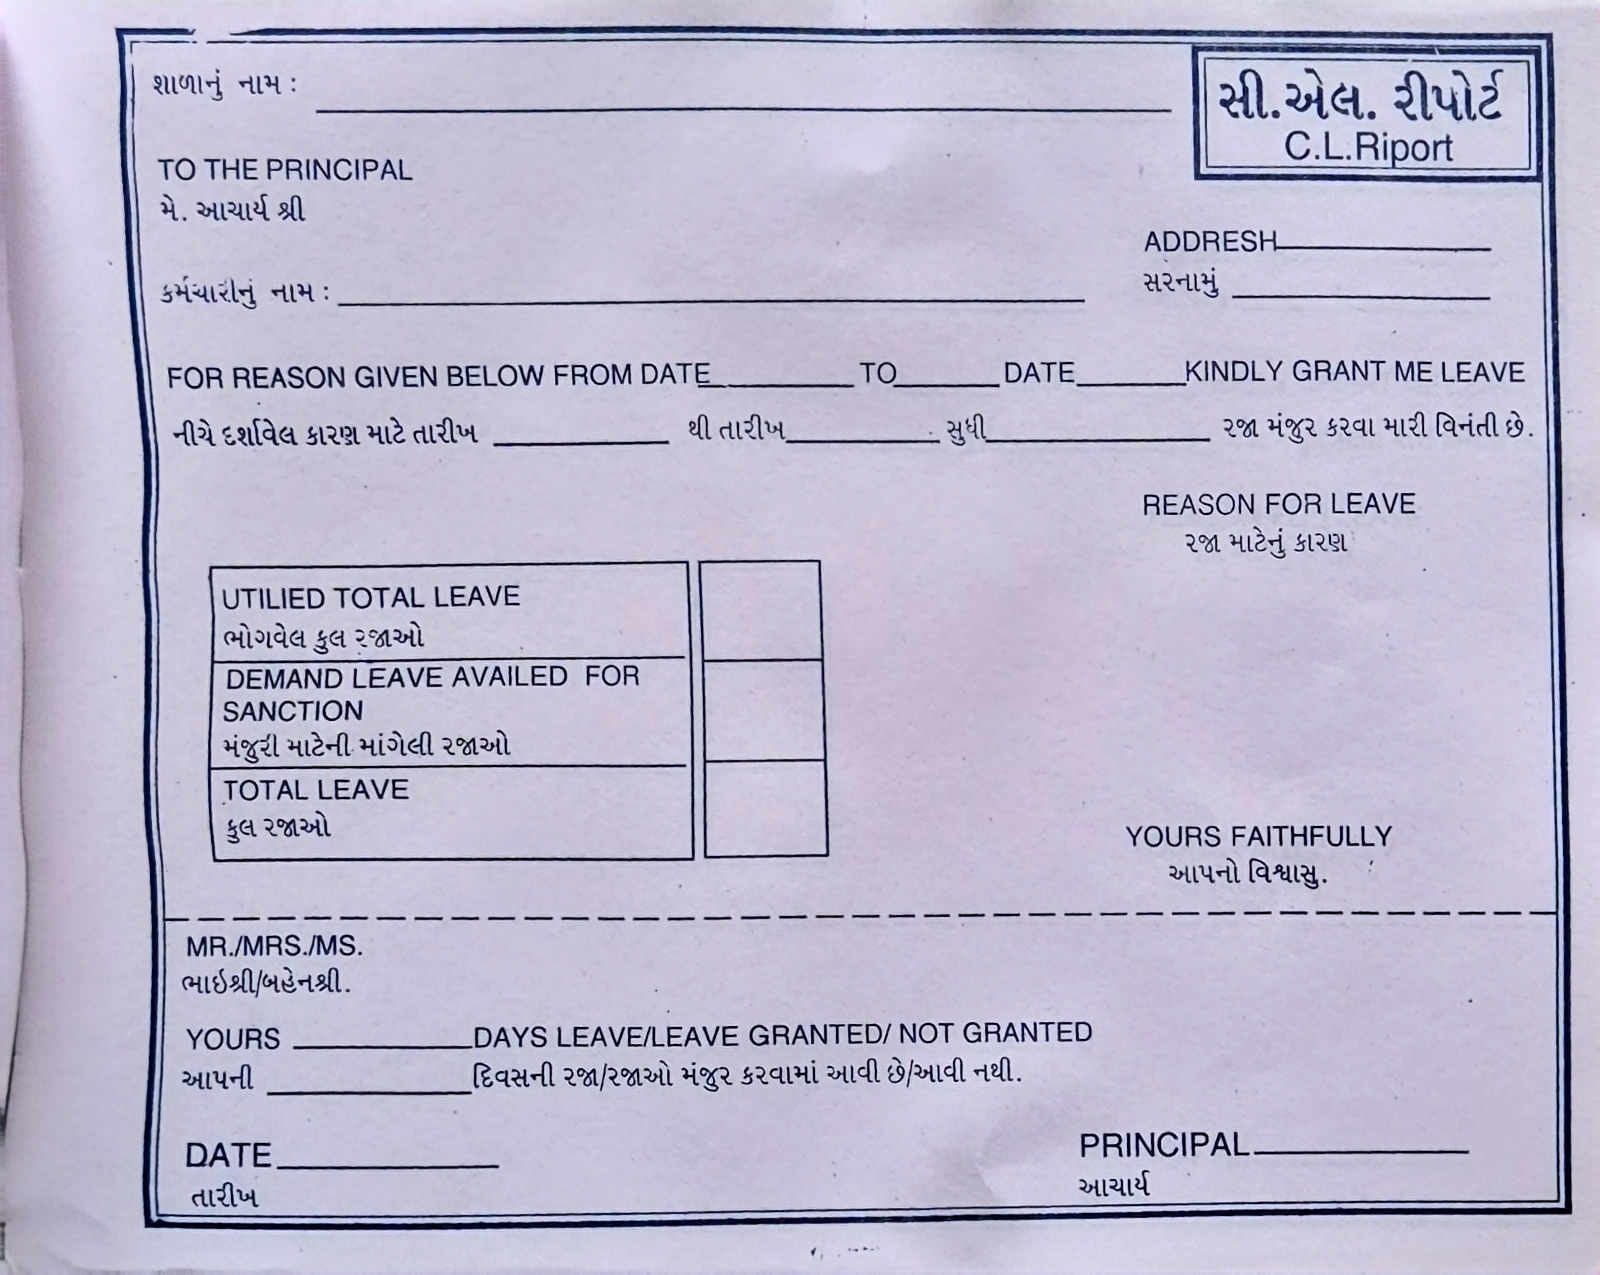 શાળાનું નામ :
સી.એલ. રીપોર્ટ
C.L.Riport
TO THE PRINCIPAL
મે. આચાર્ય શ્રી
ADDRESH
સરનામું
કર્મચારીનું નામ :
FOR REASON GIVEN BELOW FROM DATE TO DATE KINDLY GRANT ME LEAVE
નીચે દર્શાવેલ કારણ માટે તારીખ થી તારીખ સુધી રજા મંજુર કરવા મારી વિનંતી છે.
REASON FOR LEAVE
રજા માટેનું કારણ
UTILIED TOTAL LEAVE
ભોગવેલ કુલ રજાઓ
DEMAND LEAVE AVAILED FOR
SANCTION
મંજુરી માટેની માંગેલી રજાઓ
TOTAL LEAVE
કુલ રજાઓ
YOURS FAITHFULLY
આપનો વિશ્વાસુ.
MR./MRS./MS.
ભાઇશ્રી/બહેનશ્રી.
YOURS DAYS LEAVE/LEAVE GRANTED/ NOT GRANTED
આપની દિવસની રજા/રજાઓ મંજુર કરવામાં આવી છે/આવી નથી.
DATE
તારીખ
PRINCIPAL
આચાર્ય